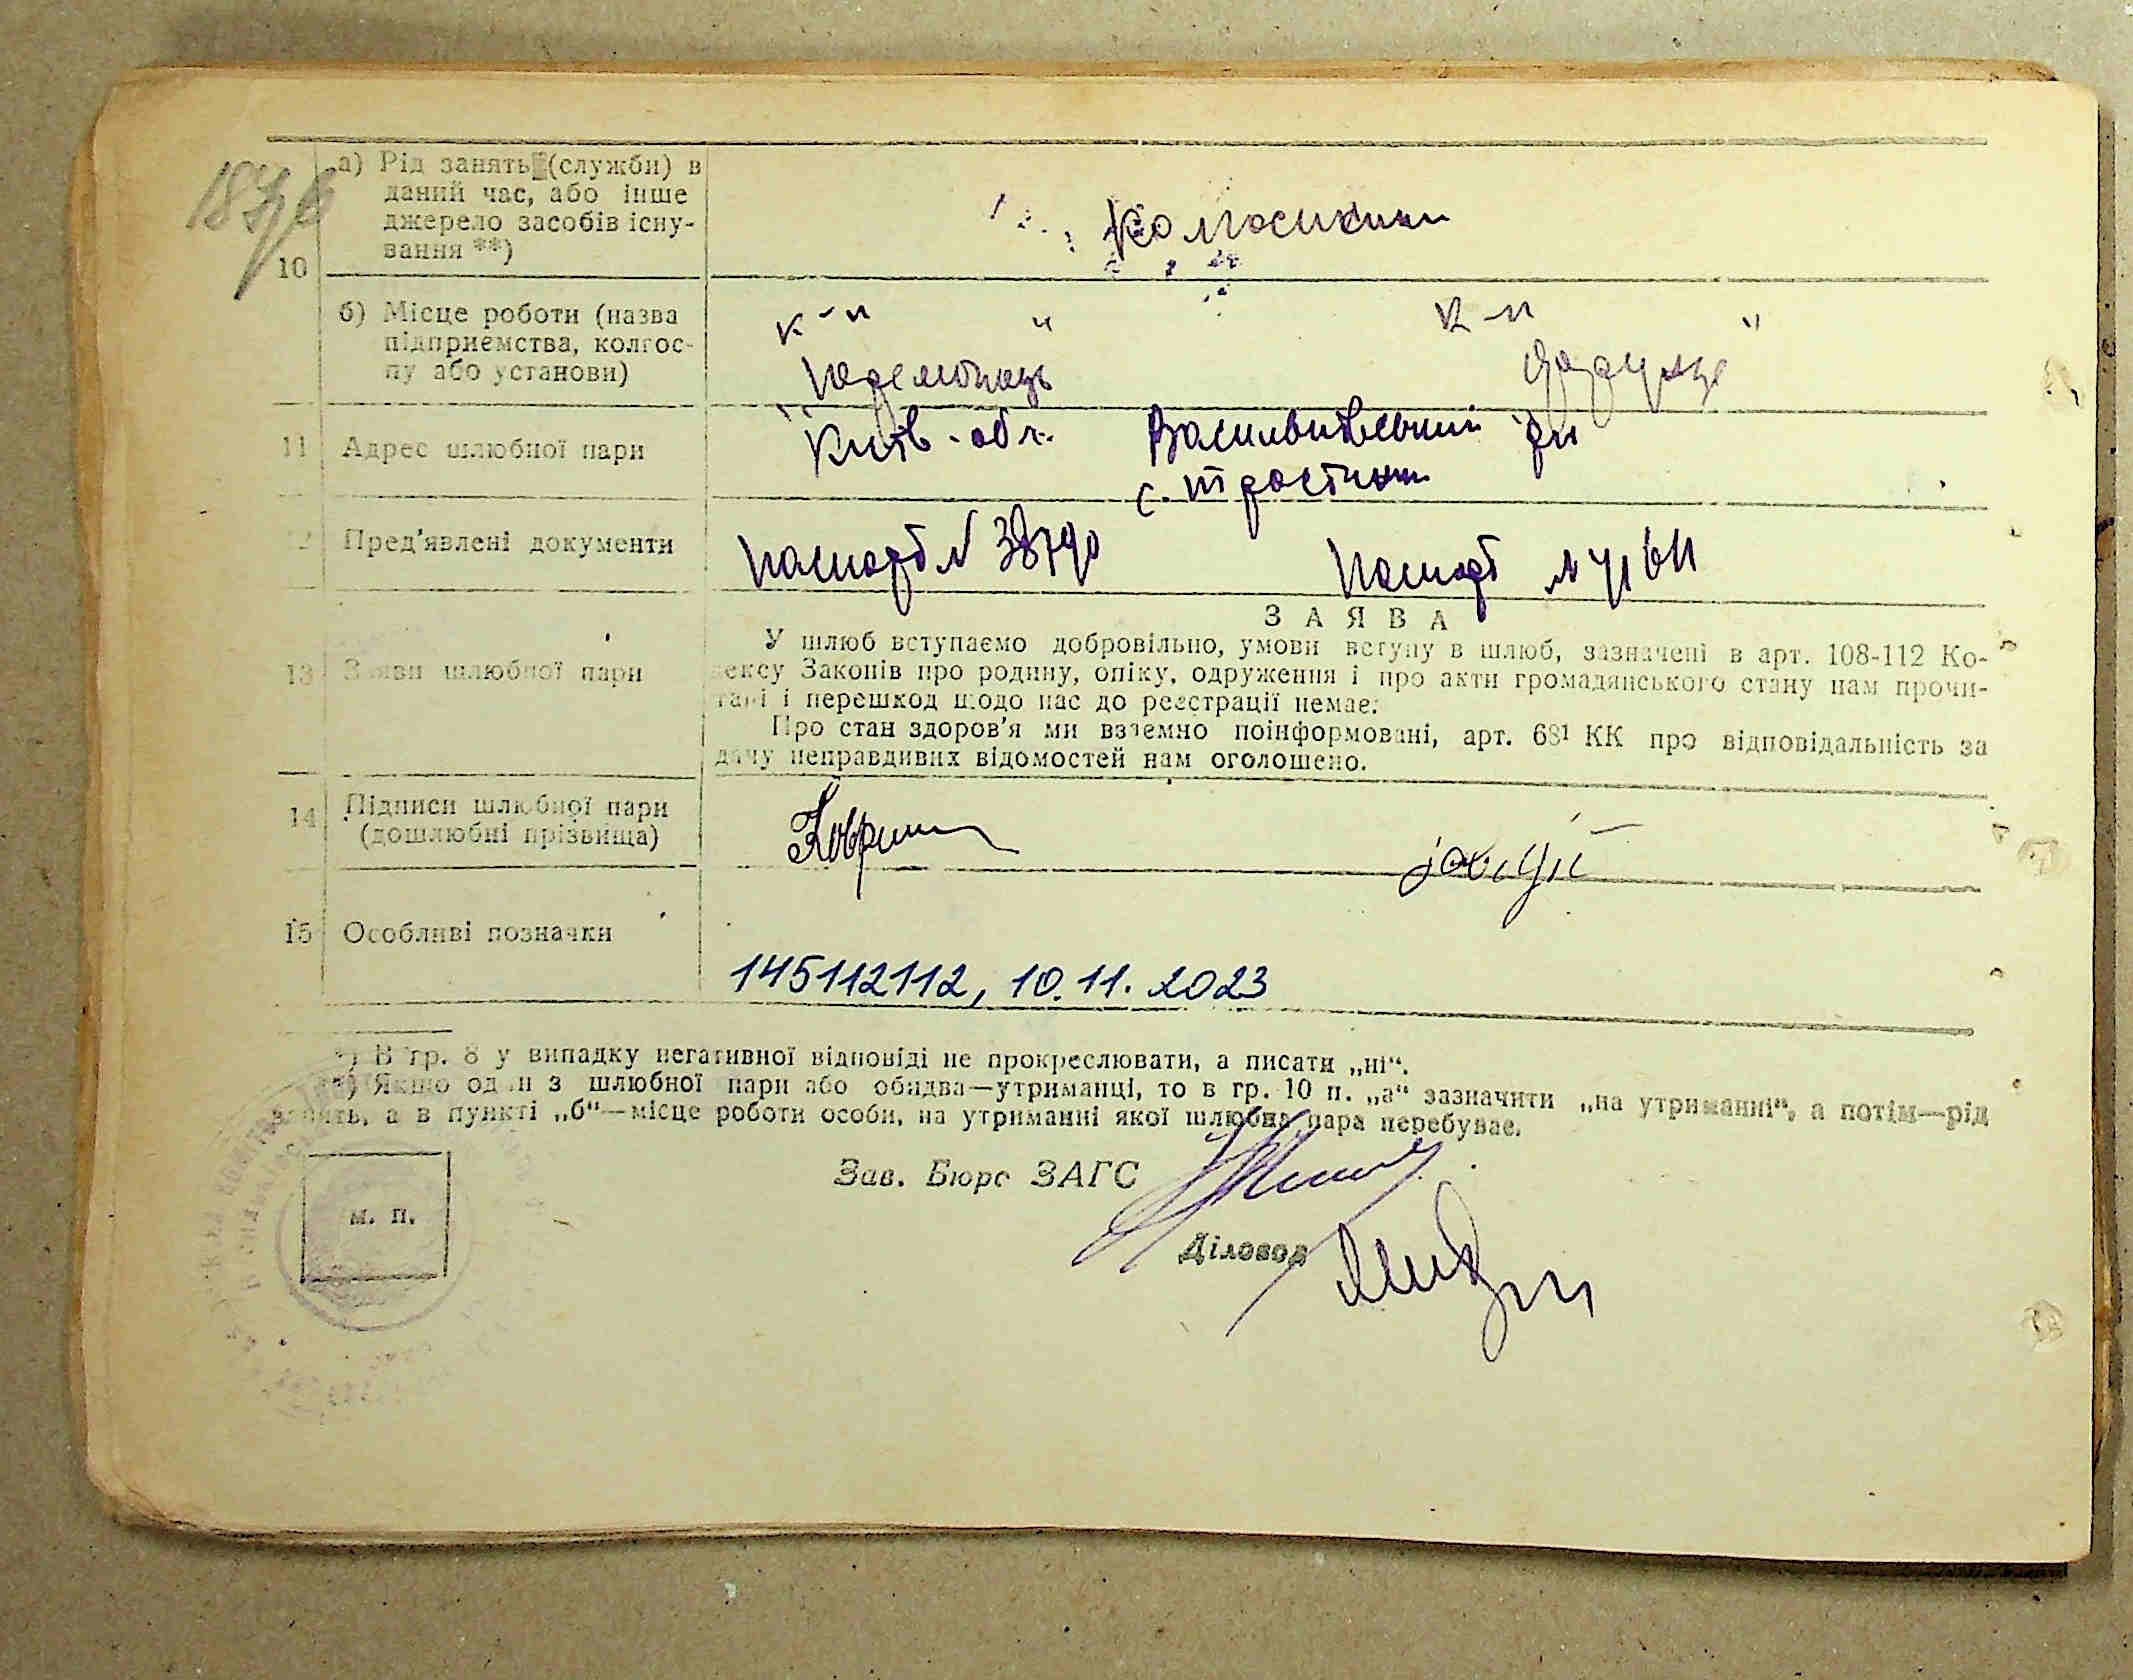 10
а) Рід занять (служби) в
даний час, або інше
джерело засобів існу-
вання **)
б) Місце роботи (назва
підприємства, колгос-
пу або установи)
к-п " "
к-п "
11 Адрес шлюбної пари
Київ. обл. Васильківський р-н
с. Тростинки
12 Пред'явлені документи
Паспорт № 38790
Паспорт №
13 Заяви шлюбної пари
ЗАЯВА
У шлюб вступаємо добровільно, умови вступу в шлюб, зазначені в арт. 108-112 Ко-
дексу Законів про родину, опіку, одруження і про акти громадянського стану нам прочи-
тані і перешкод щодо нас до реєстрації немає.
Про стан здоров'я ми взаємно поінформовані, арт. 68¹ КК про відповідальність за
дачу неправдивих відомостей нам оголошено.
14 Підписи шлюбної пари
(дошлюбні прізвища)
15 Особливі позначки
145112112, 10.11.2023
*) В гр. 8 у випадку негативної відповіді не прокреслювати, а писати „ні“.
**) Якщо один з шлюбної пари або обидва—утриманці, то в гр. 10 п. „а“ зазначити „на утриманні“, а потім—рід
занять, а в пункті „б“—місце роботи особи, на утриманні якої шлюбна пара перебуває.
Зав. Бюро ЗАГС
м. п.
Діловод